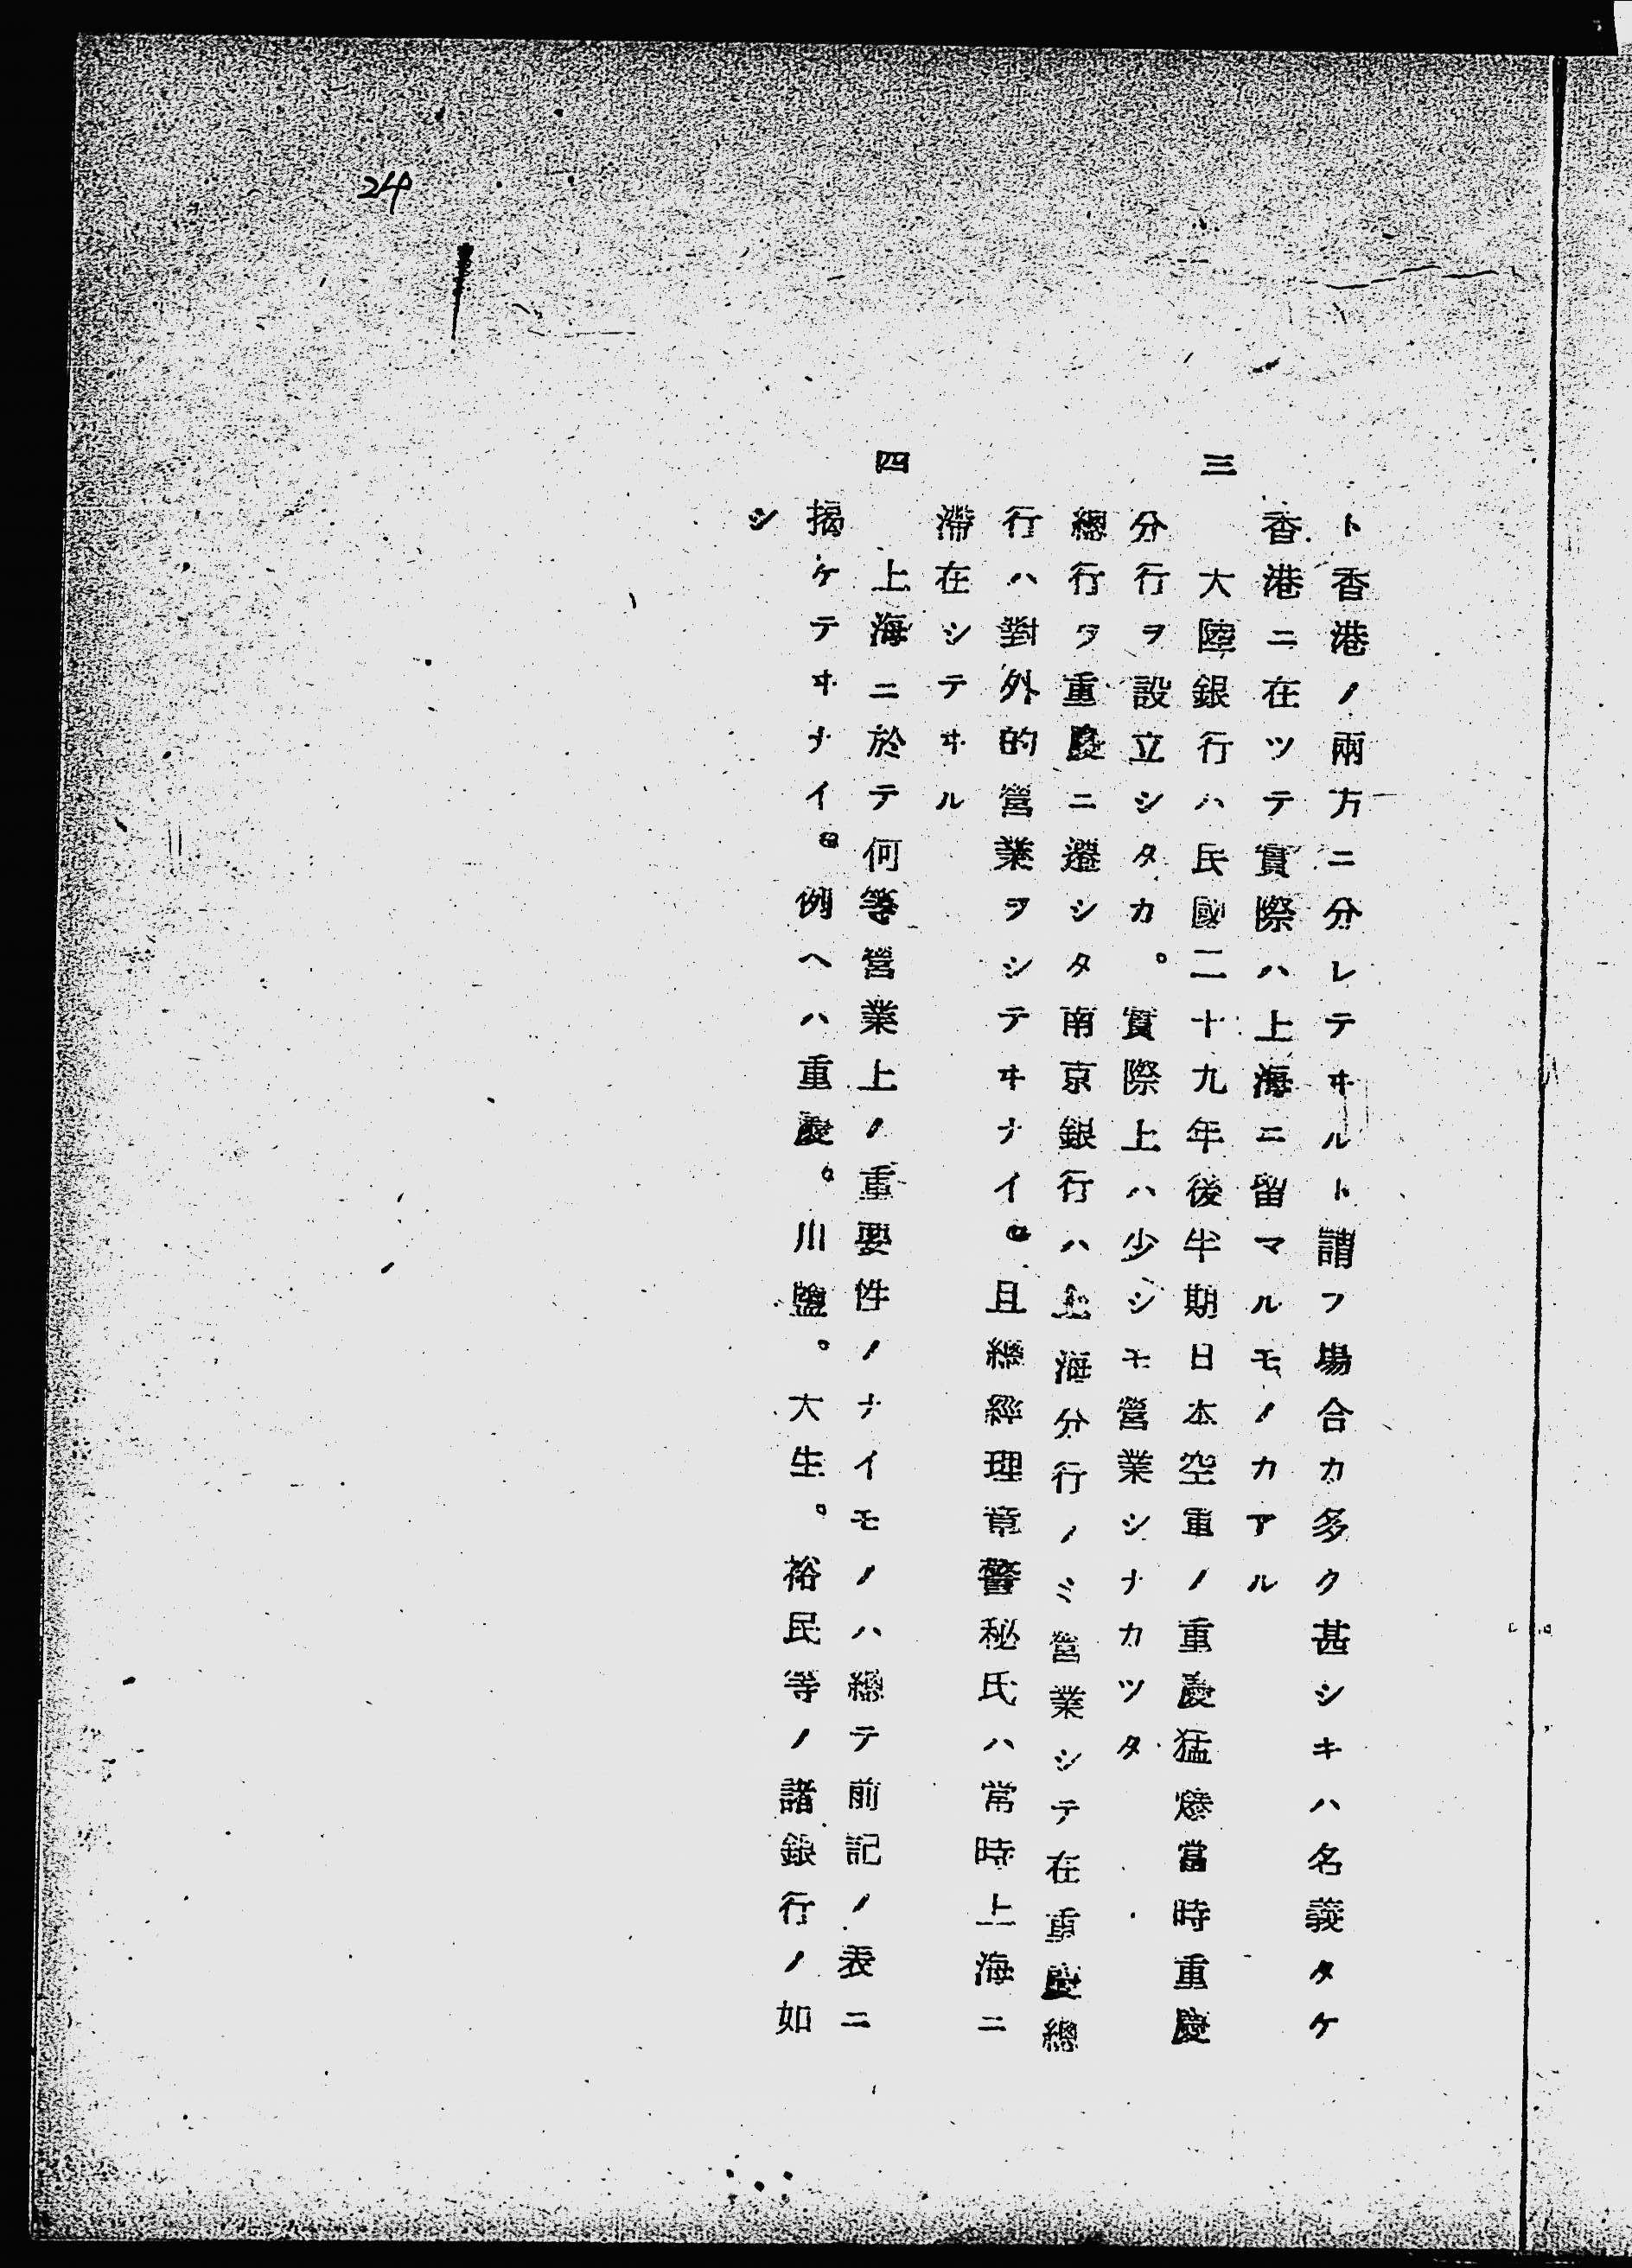 24
ト香港ノ兩方ニ分レテヰルト謂フ場合カ多ク甚シキハ名義タケ
香港ニ在ツテ實際ハ上海ニ留マルモノカアル
三 大陸銀行ハ民國二十九年後半期日本空軍ノ重慶猛爆當時重慶
分行ヲ設立シタカ。實際上ハ少シモ營業シナカツタ
總行ヲ重慶ニ遷シタ南京銀行ハ上海分行ノミ營業シテ在重慶總
行ハ對外的營業ヲシテヰナイ。且總經理章警秘氏ハ常時上海ニ
滯在シテヰル
四 上海ニ於テ何等營業上ノ重要性ノナイモノハ總テ前記ノ表ニ
揭ケテヰナイ。例ヘハ重慶。川鹽。大生。裕民等ノ諸銀行ノ如
シ